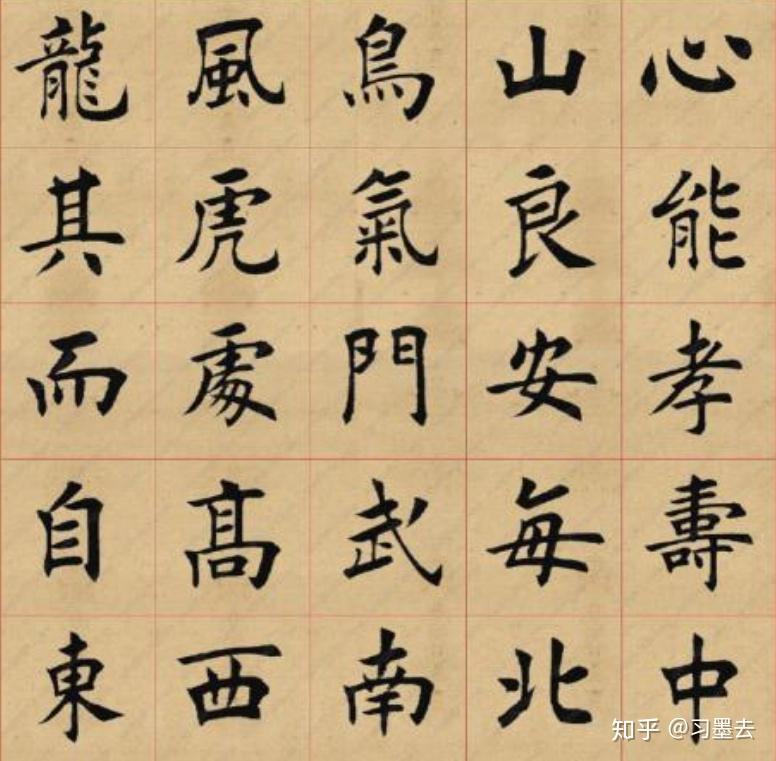 龍風鳥山心
其虎氣良能
而處門安孝
自髙武每壽
東西南北中
知乎 @习墨去